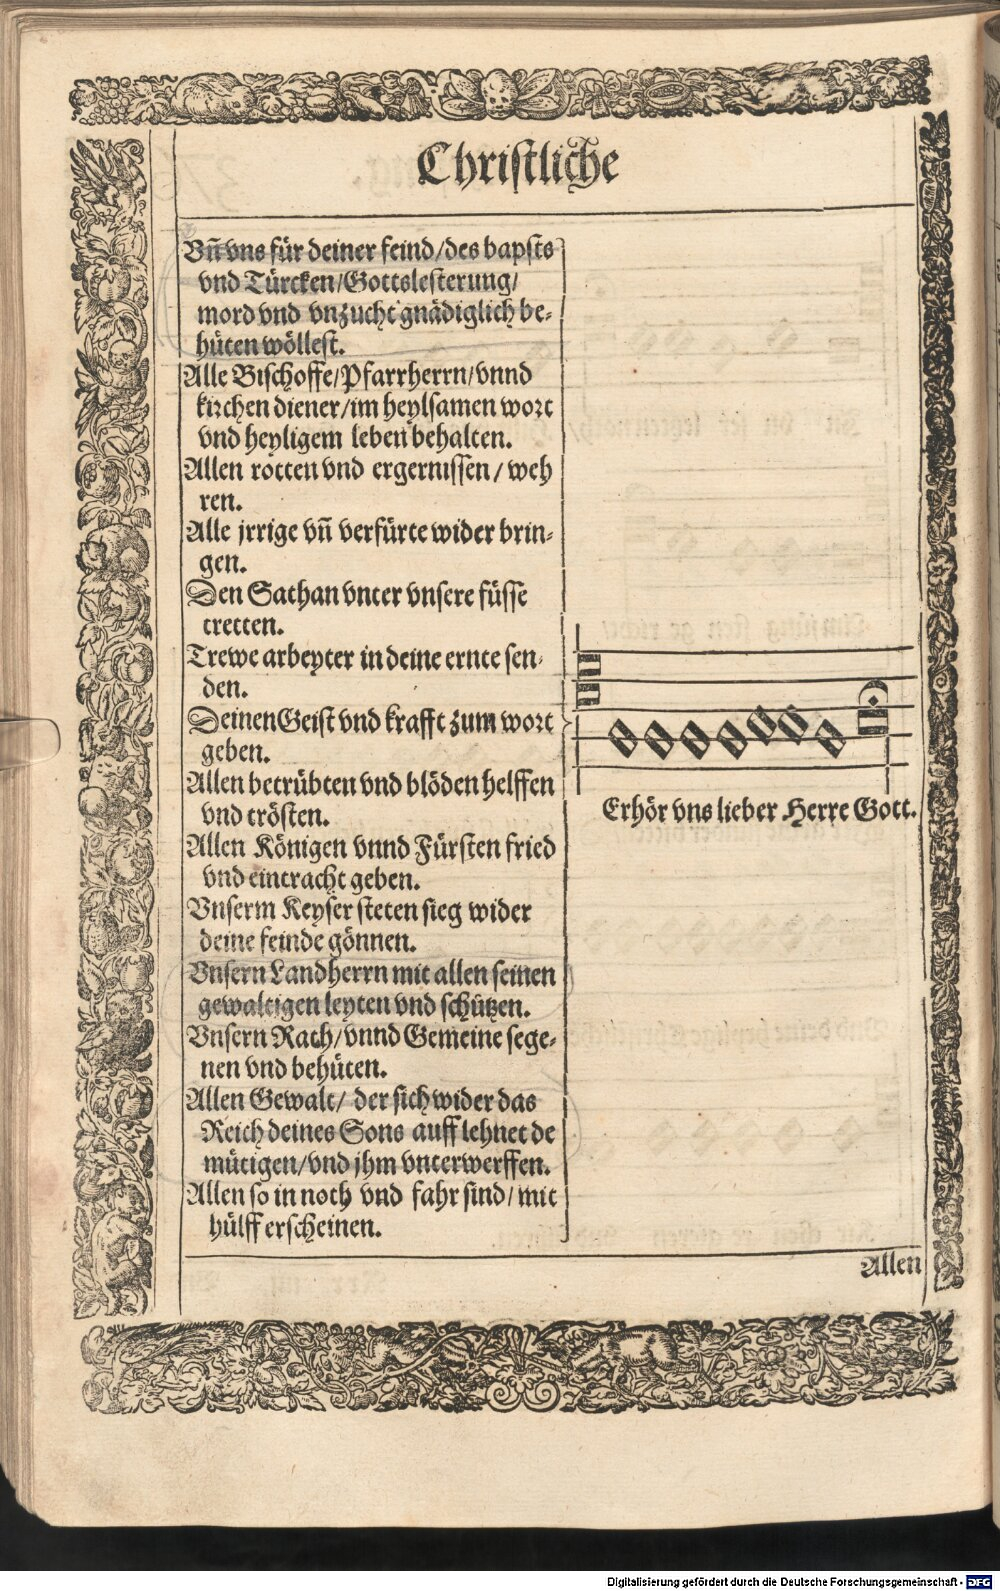 Christliche
Vñ vns für deiner feind/des bapsts
vnd Türcken/Gottslesterung/
mord vnd vnzucht gnädiglich be-
hüten wöllest.
Alle Bischoffe/Pfarrherrn/vnnd
kirchen diener/im heylsamen wort
vnd heyligem leben behalten.
Allen rotten vnd ergernissen/weh
ren.
Alle jrrige vñ verfürte wider brin-
gen.
Den Sathan vnter vnsere füsse
tretten.
Trewe arbeyter in deine ernte sen-
den.
Deinen Geist vnd krafft zum wort
geben.
Allen betrübten vnd blöden helffen
vnd trösten.
Allen Königen vnnd Fürsten fried
vnd eintracht geben.
Vnserm Keyser steten sieg wider
deine feinde gönnen.
Vnsern Landherrn mit allen seinen
gewaltigen leyten vnd schützen.
Vnsern Rath/vnnd Gemeine sege-
nen vnd behüten.
Allen Gewalt/ der sich wider das
Reich deines Sons auff lehnet de
mütigen/vnd jhm vnterwerffen.
Allen so in noth vnd fahr sind/mit
hülff erscheinen.
Erhör vns lieber Herre Gott.
Allen
Digitalisierung gefördert durch die Deutsche Forschungsgemeinschaft - DFG